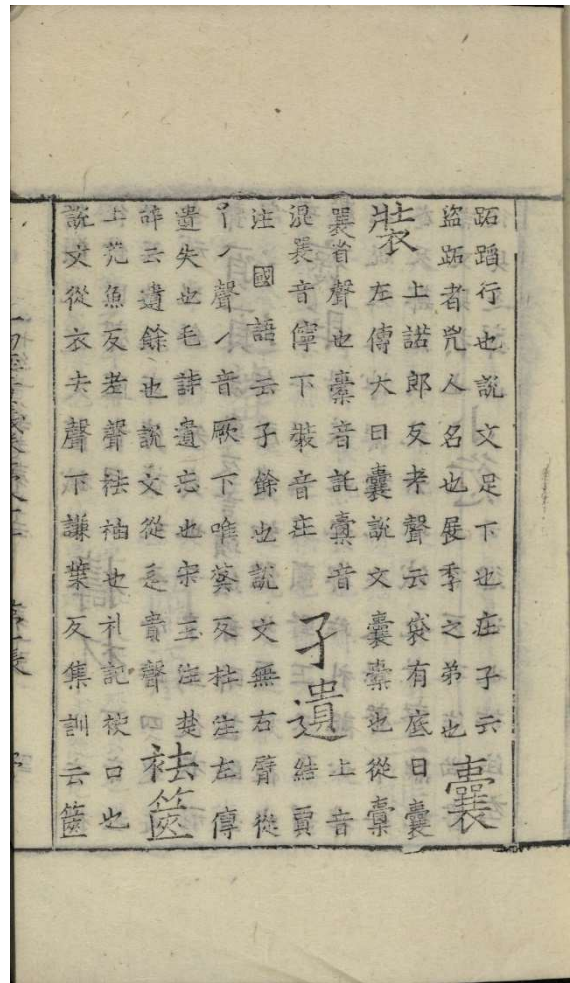 跖蹈行也說文足下也庄子云
盜跖者兇人名也展季之弟也囊
裝上諾郎反考聲云袋有底曰囊
左傳大曰囊說文囊橐也從橐
㐮省聲也橐音託㯻音
混㐮音儜下裝音庄孑遺上音結賈
注國語云子餘也說文無右臂從
了乀聲乀音厥下唯葵反杜注左傳
遺失也毛詩遺忘也宋玉注楚
辞云遺餘也說文從辵貴聲袪篋
上羌魚反考聲袪袖也礼記袂口也
說文從衣去聲下謙葉反集訓云篋